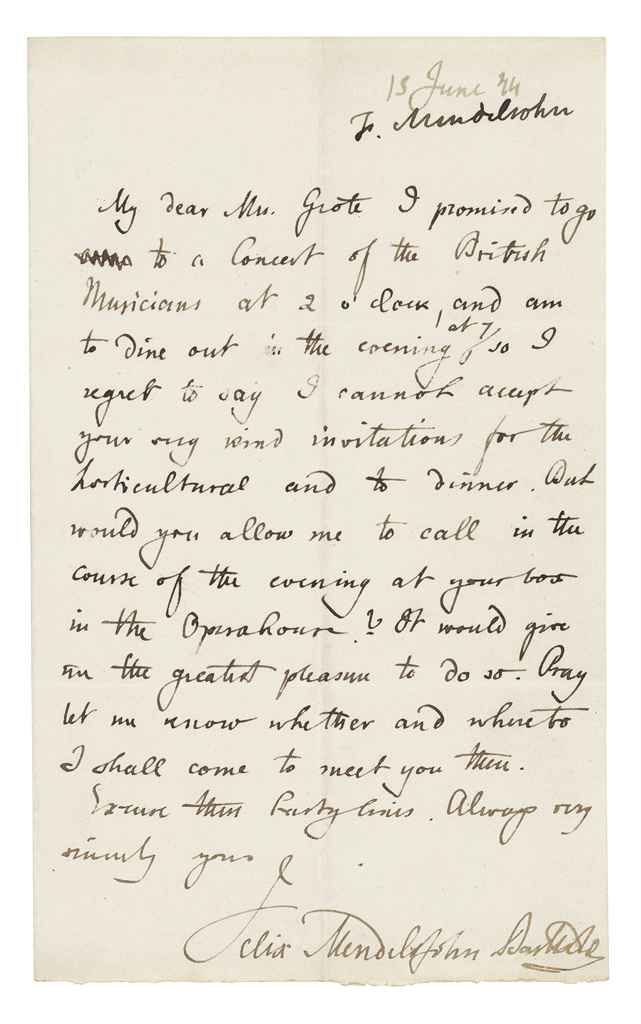 15 June 44
F. Mendelsohn
My dear Mrs. Grote I promised to go
to a Concert of the British
Musicians at 2 o clock, and am
to dine out in the evening at 7, so I
regret to say I cannot accept
your very kind invitations for the
horticultural and to dinner. But
would you allow me to call in the
course of the evening at your box
in the Operahouse? It would give
me the greatest pleasure to do so. Pray
let me know whether and where to
I shall come to meet you then.
Excuse these hasty lines. Always very
sincerely yours
Felix Mendelssohn Bartholdy